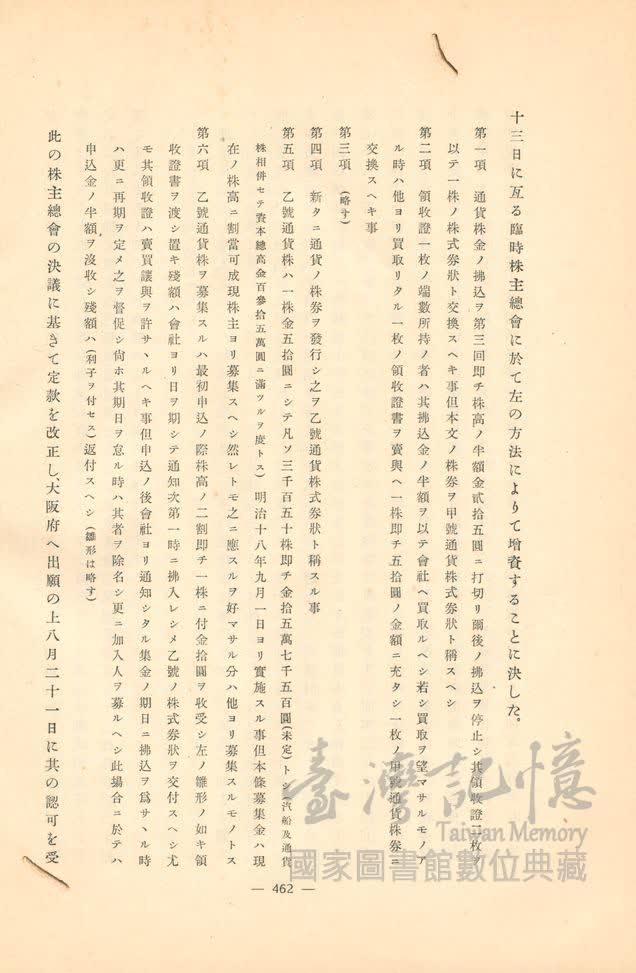 十三日に亙る臨時株主總會に於て左の方法によりて增資することに決した。
第一項 通貨株金ノ拂込ヲ第三回卽チ株高ノ半額金貳拾五圓ニ打切リ爾後ノ拂込ヲ停止シ其領收證二枚ヲ
以テ一株ノ株式券狀ト交換スヘキ事但本文ノ株券ヲ甲號通貨株式券狀ト稱スヘシ
第二項 領收證一枚ノ端數所持ノ者ハ其拂込金ノ半額ヲ以テ會社ヘ買取ルヘシ若シ買取ヲ望マサルモノア
ル時ハ他ヨリ買取リタル一枚ノ領收證書ヲ賣與ヘ一株卽チ五拾圓ノ金額ニ充タシ一枚ノ甲號通貨株券ニ
交換スヘキ事
第三項 (略す)
第四項 新タニ通貨ノ株券ヲ發行シ之ヲ乙號通貨株式券狀ト稱スル事
第五項 乙號通貨株ハ一株金五拾圓ニシテ凡ソ三千百五十株卽チ金拾五萬七千五百圓(未定)トシ(汽船及通貨
株相倂セテ資本總高金百參拾五萬圓ニ滿ツルヲ度トス) 明治十八年九月一日ヨリ實施スル事但本條募集金ハ現
在ノ株高ニ割當可成現株主ヨリ募集スヘシ然レトモ之ニ應スルヲ好マサル分ハ他ヨリ募集スルモノトス
第六項 乙號通貨株ヲ募集スルハ最初申込ノ際株高ノ二割卽チ一株ニ付金拾圓ヲ收受シ左ノ雛形ノ如キ領
收證書ヲ渡シ置キ殘額ハ會社ヨリ日ヲ期シテ通知次第一時ニ拂入レシメ乙號ノ株式券狀ヲ交付スヘシ尤
モ其領收證ハ賣買讓與ヲ許サヽルヘキ事但申込ノ後會社ヨリ通知シタル集金ノ期日ニ拂込ヲ爲サヽル時
ハ更ニ再期ヲ定メ之ヲ督促シ尙ホ其期日ヲ怠ル時ハ其者ヲ除名シ更ニ加入人ヲ募ルヘシ此場合ニ於テハ
申込金ノ半額ヲ沒收シ殘額ハ(利子ヲ付セス)返付スヘシ (雛形は略す)
此の株主總會の決議に基きて定款を改正し、大阪府へ出願の上八月二十一日に其の認可を受
— 462 —
臺灣記憶
Taiwan Memory
國家圖書館數位典藏